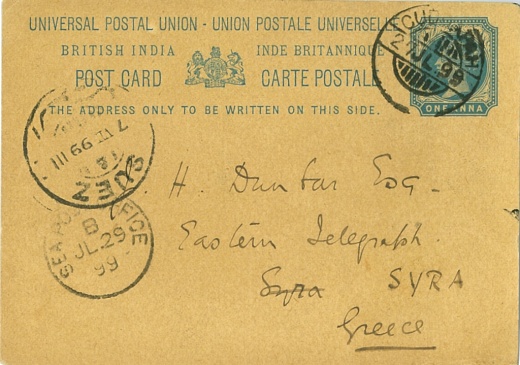 UNIVERSAL POSTAL UNION - UNION POSTALE UNIVERSELLE
BRITISH INDIA INDE BRITANNIQUE
POST CARD CARTE POSTALE
THE ADDRESS ONLY TO BE WRITTEN ON THIS SIDE.
ONE ANNA
JL.99
SUEZ
7 VII 99 III
SEA POST OFFICE
B
JL.29
99
H. Dunbar Esq-
Eastern Telegraph.
Syra SYRA
Greece